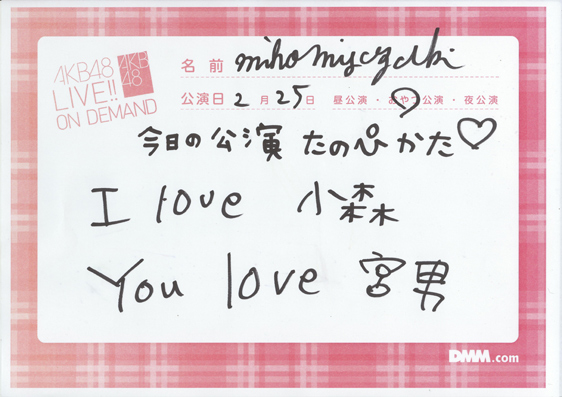 AKB48
LIVE!!
ON DEMAND
AKB
48
名前 miho miyazaki
公演日 2月25日 昼公演・おやつ公演・夜公演
今日の公演 たのぴかた♡
I love 小森
You love 宮男
DMM.com